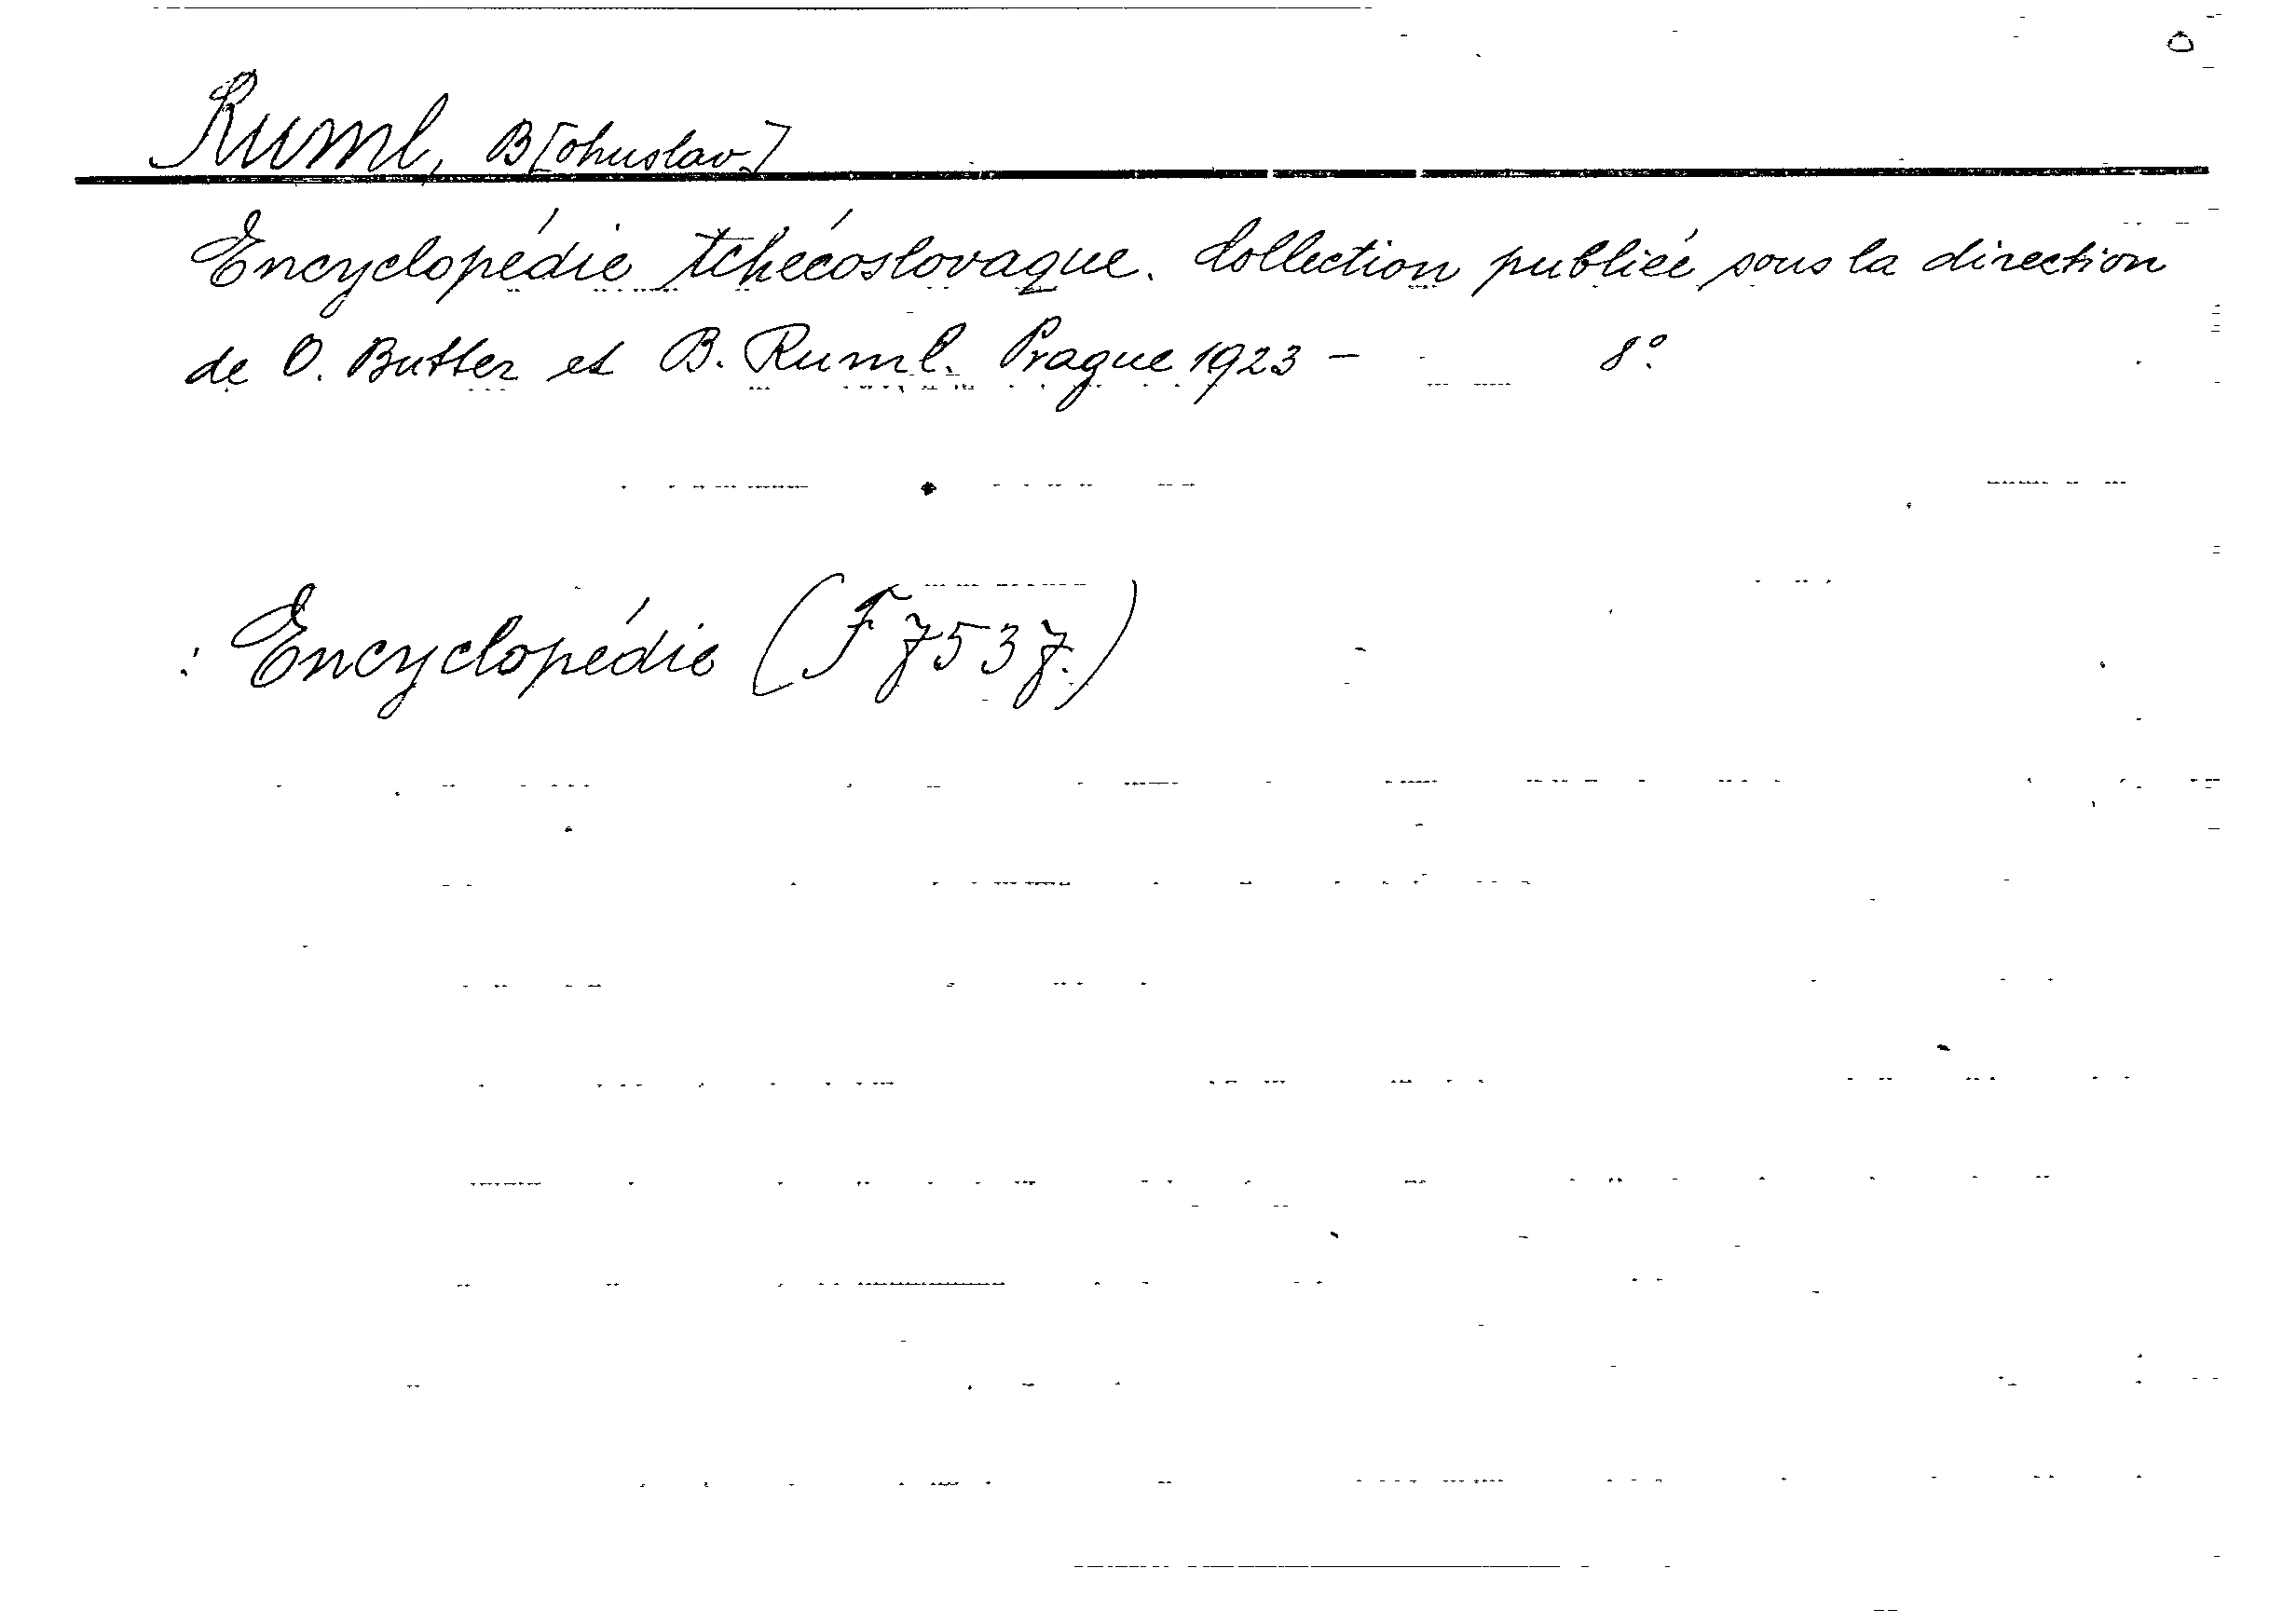 Ruml, B[ohuslav.]
Encyclopédie tchécoslovaque. Collection publiée sous la direction
de O. Butter et B. Ruml. Prague 1923 – 8°.
: Encyclopédie (F 7537.)